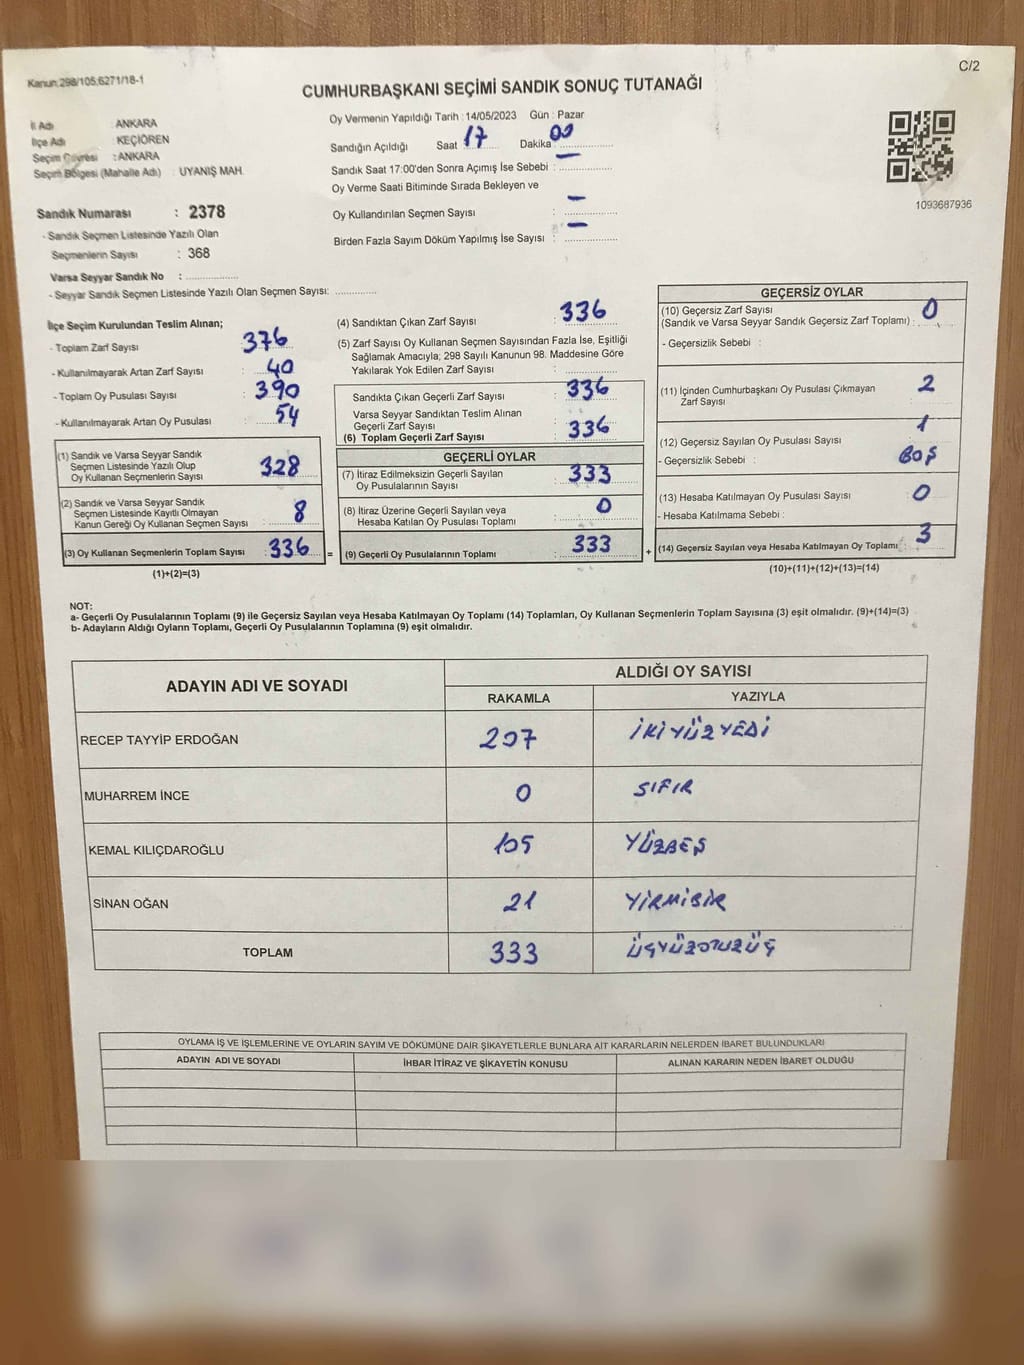 C/2
Kanun:298/105,6271/18-1
CUMHURBAŞKANI SEÇİMİ SANDIK SONUÇ TUTANAĞI
İl Adı : ANKARA
İlçe Adı : KEÇİÖREN
Seçim Çevresi : ANKARA
Seçim Bölgesi (Mahalle Adı) : UYANIŞ MAH.
Sandık Numarası : 2378
- Sandık Seçmen Listesinde Yazılı Olan
Seçmenlerin Sayısı : 368
Varsa Seyyar Sandık No : ..................
- Seyyar Sandık Seçmen Listesinde Yazılı Olan Seçmen Sayısı: .............
Oy Vermenin Yapıldığı Tarih : 14/05/2023 Gün : Pazar
Sandığın Açıldığı Saat 17 Dakika 00
Sandık Saat 17:00'den Sonra Açımış İse Sebebi : —
Oy Verme Saati Bitiminde Sırada Bekleyen ve
Oy Kullandırılan Seçmen Sayısı : —
Birden Fazla Sayım Döküm Yapılmış İse Sayısı : —
1093687936
İlçe Seçim Kurulundan Teslim Alınan;
- Toplam Zarf Sayısı : 376
- Kullanılmayarak Artan Zarf Sayısı : 40
- Toplam Oy Pusulası Sayısı : 390
- Kullanılmayarak Artan Oy Pusulası : 54
(1) Sandık ve Varsa Seyyar Sandık
Seçmen Listesinde Yazılı Olup
Oy Kullanan Seçmenlerin Sayısı : 328
(2) Sandık ve Varsa Seyyar Sandık
Seçmen Listesinde Kayıtlı Olmayan
Kanun Gereği Oy Kullanan Seçmen Sayısı : 8
(3) Oy Kullanan Seçmenlerin Toplam Sayısı : 336
(1)+(2)=(3)
(4) Sandıktan Çıkan Zarf Sayısı : 336
(5) Zarf Sayısı Oy Kullanan Seçmen Sayısından Fazla İse, Eşitliği
Sağlamak Amacıyla; 298 Sayılı Kanunun 98. Maddesine Göre
Yakılarak Yok Edilen Zarf Sayısı : ..............
Sandıkta Çıkan Geçerli Zarf Sayısı : 336
Varsa Seyyar Sandıktan Teslim Alınan
Geçerli Zarf Sayısı :
(6) Toplam Geçerli Zarf Sayısı : 336
GEÇERLİ OYLAR
(7) İtiraz Edilmeksizin Geçerli Sayılan
Oy Pusulalarının Sayısı : 333
(8) İtiraz Üzerine Geçerli Sayılan veya
Hesaba Katılan Oy Pusulası Toplamı : 0
= (9) Geçerli Oy Pusulalarının Toplamı : 333
GEÇERSİZ OYLAR
(10) Geçersiz Zarf Sayısı
(Sandık ve Varsa Seyyar Sandık Geçersiz Zarf Toplamı) : 0
- Geçersizlik Sebebi :
(11) İçinden Cumhurbaşkanı Oy Pusulası Çıkmayan
Zarf Sayısı : 2
(12) Geçersiz Sayılan Oy Pusulası Sayısı : 1
- Geçersizlik Sebebi : BOŞ
(13) Hesaba Katılmayan Oy Pusulası Sayısı : 0
- Hesaba Katılmama Sebebi :
+ (14) Geçersiz Sayılan veya Hesaba Katılmayan Oy Toplamı : 3
(10)+(11)+(12)+(13)=(14)
NOT:
a- Geçerli Oy Pusulalarının Toplamı (9) ile Geçersiz Sayılan veya Hesaba Katılmayan Oy Toplamı (14) Toplamları, Oy Kullanan Seçmenlerin Toplam Sayısına (3) eşit olmalıdır. (9)+(14)=(3)
b- Adayların Aldığı Oyların Toplamı, Geçerli Oy Pusulalarının Toplamına (9) eşit olmalıdır.
ADAYIN ADI VE SOYADI ALDIĞI OY SAYISI
RAKAMLA YAZIYLA
RECEP TAYYİP ERDOĞAN 207 İKİYÜZYEDİ
MUHARREM İNCE 0 SIFIR
KEMAL KILIÇDAROĞLU 105 YÜZBEŞ
SİNAN OĞAN 21 YİRMİBİR
TOPLAM 333 ÜÇYÜZOTUZÜÇ
OYLAMA İŞ VE İŞLEMLERİNE VE OYLARIN SAYIM VE DÖKÜMÜNE DAİR ŞİKAYETLERLE BUNLARA AİT KARARLARIN NELERDEN İBARET BULUNDUKLARI
ADAYIN ADI VE SOYADI İHBAR İTİRAZ VE ŞİKAYETİN KONUSU ALINAN KARARIN NEDEN İBARET OLDUĞU